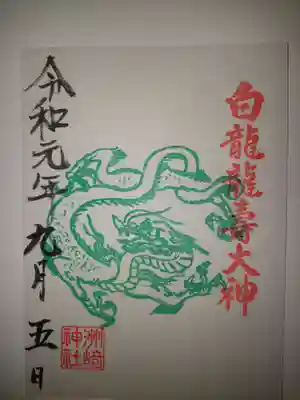 白龍龍壽大神
令和元年九月五日
洲崎
神社